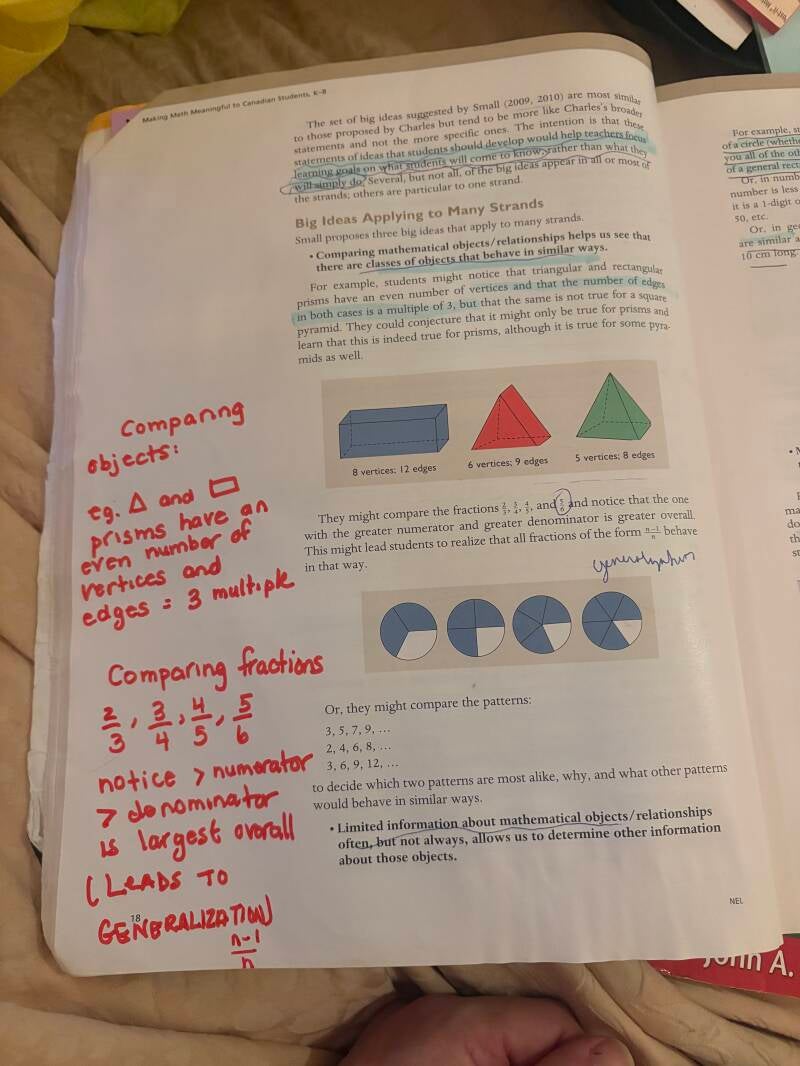 Making Math Meaningful to Canadian Students, K–8
The set of big ideas suggested by Small (2009, 2010) are most similar
to those proposed by Charles but tend to be more like Charles's broader
statements and not the more specific ones. The intention is that these
statements of ideas that students should develop would help teachers focus
learning goals on what students will come to know, rather than what they
will simply do. Several, but not all, of the big ideas appear in all or most of
the strands; others are particular to one strand.
Big Ideas Applying to Many Strands
Small proposes three big ideas that apply to many strands.
• Comparing mathematical objects/relationships helps us see that
there are classes of objects that behave in similar ways.
For example, students might notice that triangular and rectangular
prisms have an even number of vertices and that the number of edges
in both cases is a multiple of 3, but that the same is not true for a square
pyramid. They could conjecture that it might only be true for prisms and
learn that this is indeed true for prisms, although it is true for some pyra-
mids as well.
8 vertices; 12 edges
6 vertices; 9 edges
5 vertices; 8 edges
They might compare the fractions 2/3, 3/4, 4/5, and 5/6 and notice that the one
with the greater numerator and greater denominator is greater overall.
This might lead students to realize that all fractions of the form n−1/n behave
in that way.
generalization
Or, they might compare the patterns:
3, 5, 7, 9, …
2, 4, 6, 8, …
3, 6, 9, 12, …
to decide which two patterns are most alike, why, and what other patterns
would behave in similar ways.
• Limited information about mathematical objects/relationships
often, but not always, allows us to determine other information
about those objects.
NEL
18
Comparing
objects:
eg. △ and ▭
prisms have an
even number of
vertices and
edges = 3 multiple
Comparing fractions
2/3, 3/4, 4/5, 5/6
notice > numerator
> denominator
is largest overall
(LEADS TO
GENERALIZATION)
n-1/n
For example, st
of a circle (whethe
you all of the oth
of a general rect
Or, in numb
number is less
it is a 1-digit o
50, etc.
Or, in geo
are similar a
10 cm long.
John A.